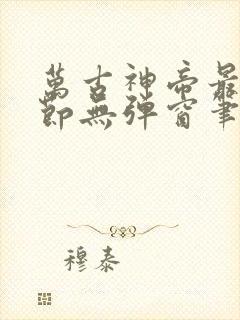 萬古神帝最
節無彈窗筆
穆泰